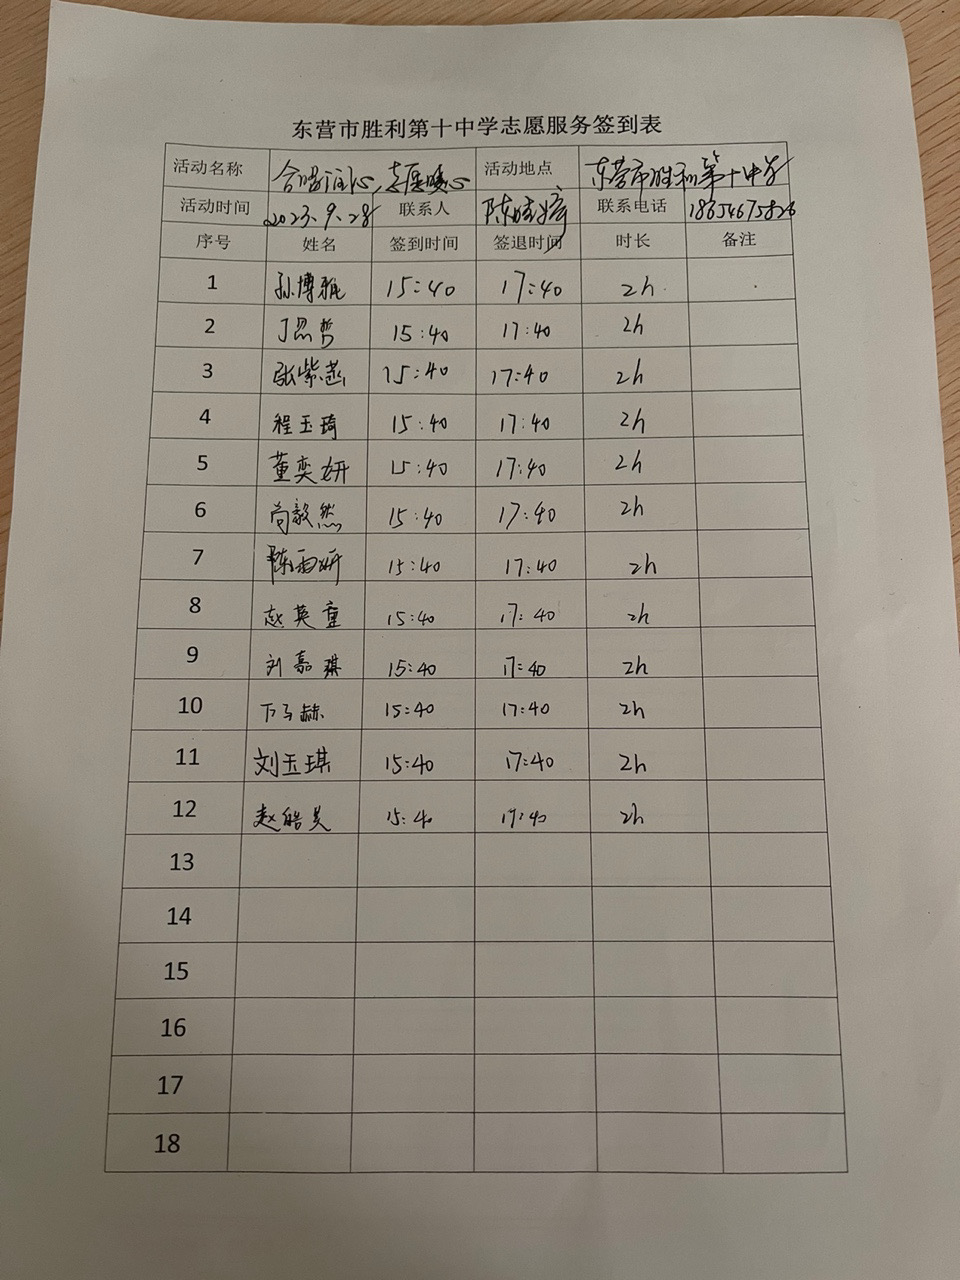 东营市胜利第十中学志愿服务签到表
活动名称 合唱润心,志愿暖心 活动地点 东营市胜利第十中学
活动时间 2023.9.28 联系人 陈 联系电话 18654675826
序号 姓名 签到时间 签退时间 时长 备注
1 孙博雅 15:40 17:40 2h
2 丁思哲 15:40 17:40 2h
3 张紫菡 15:40 17:40 2h
4 程玉琦 15:40 17:40 2h
5 董奕妍 15:40 17:40 2h
6 尚毅然 15:40 17:40 2h
7 陈雨妍 15:40 17:40 2h
8 赵英童 15:40 17:40 2h
9 刘嘉琪 15:40 17:40 2h
10 赫 15:40 17:40 2h
11 刘玉琪 15:40 17:40 2h
12 赵皓昊 15:40 17:40 2h
13
14
15
16
17
18